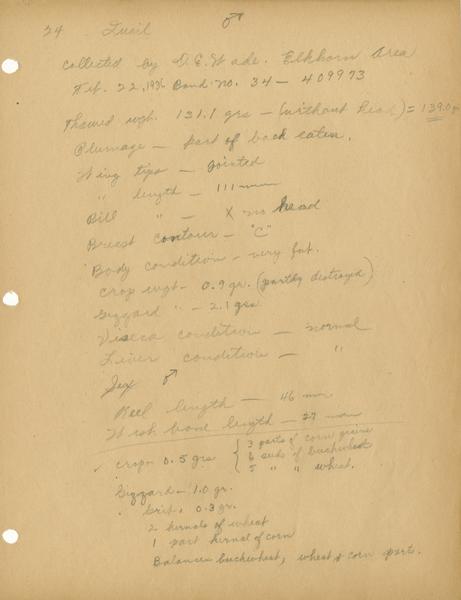 24 Quail ♂
collected by D.E. Wade. Elkhorn Area
Feb. 22, 1936 Band no. 34 — 409973
Thawed wgt. 131.1 grs — (without head) = 139.0 gr
Plumage — part of back eaten.
Wing tips — pointed
" length — 111 mm
Bill " — X no head
Breast contour — "C"
Body condition — very fat.
Crop wgt — 0.9 gr. (partly destroyed)
Gizzard " — 2.1 grs
Viscera condition — normal
Liver condition — "
Sex ♂
Keel length — 46 mm
Wish bone length — 27 mm
✓ crop 0.5 grs { 3 parts of corn grains
6 seeds of buckwheat
5 " " wheat.
Gizzard — 1.0 gr.
" Grit, 0.3 gr.
2 kernels of wheat
1 part kernel of corn
Balance buckwheat, wheat & corn parts.